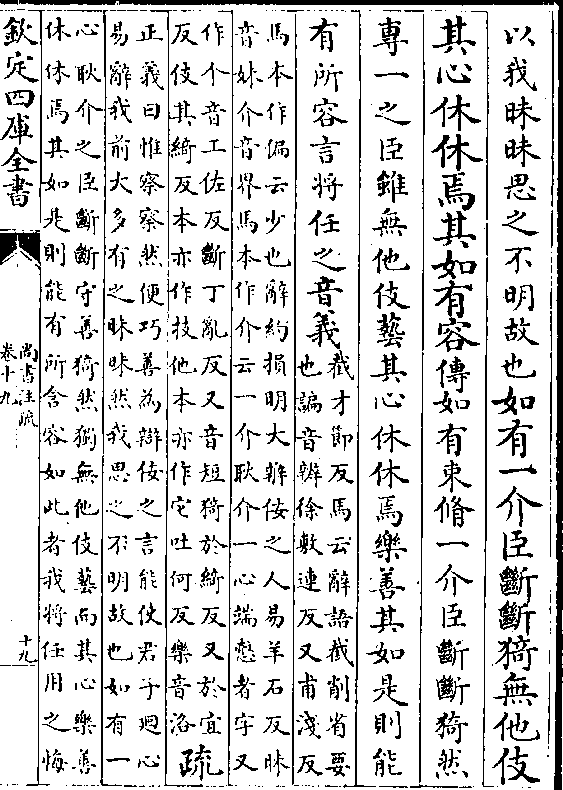 以我昧昧思之不明故也如有一介臣斷斷猗無他伎
其心休休焉其如有容傳如有束脩一介臣斷斷猗然
專一之臣雖無他伎藝其心休休焉樂善其如是則能
有所容言將任之音義截才節反馬云辭語截削省要
也諞音辨徐敷連反又甫淺反
馬本作偏云少也辭約損明大辨佞之人易羊石反昧
音妹介音界馬本作介云一介耿介一心端慤者字又
作个音工佐反斷丁亂反又音短猗於綺反又於宜
反伎其綺反本亦作技他本亦作它吐何反樂音洛疏
正義曰惟察察然便巧善為辯佞之言能使君子迴心
易辭我前大多有之昧昧然我思之不明故也如有一
心耿介之臣斷斷守善猗然獨無他伎藝而其心樂善
休休焉其如是則能有所含容如此者我將任用之悔
欽定四庫全書
尚書注疏
卷十九
十九